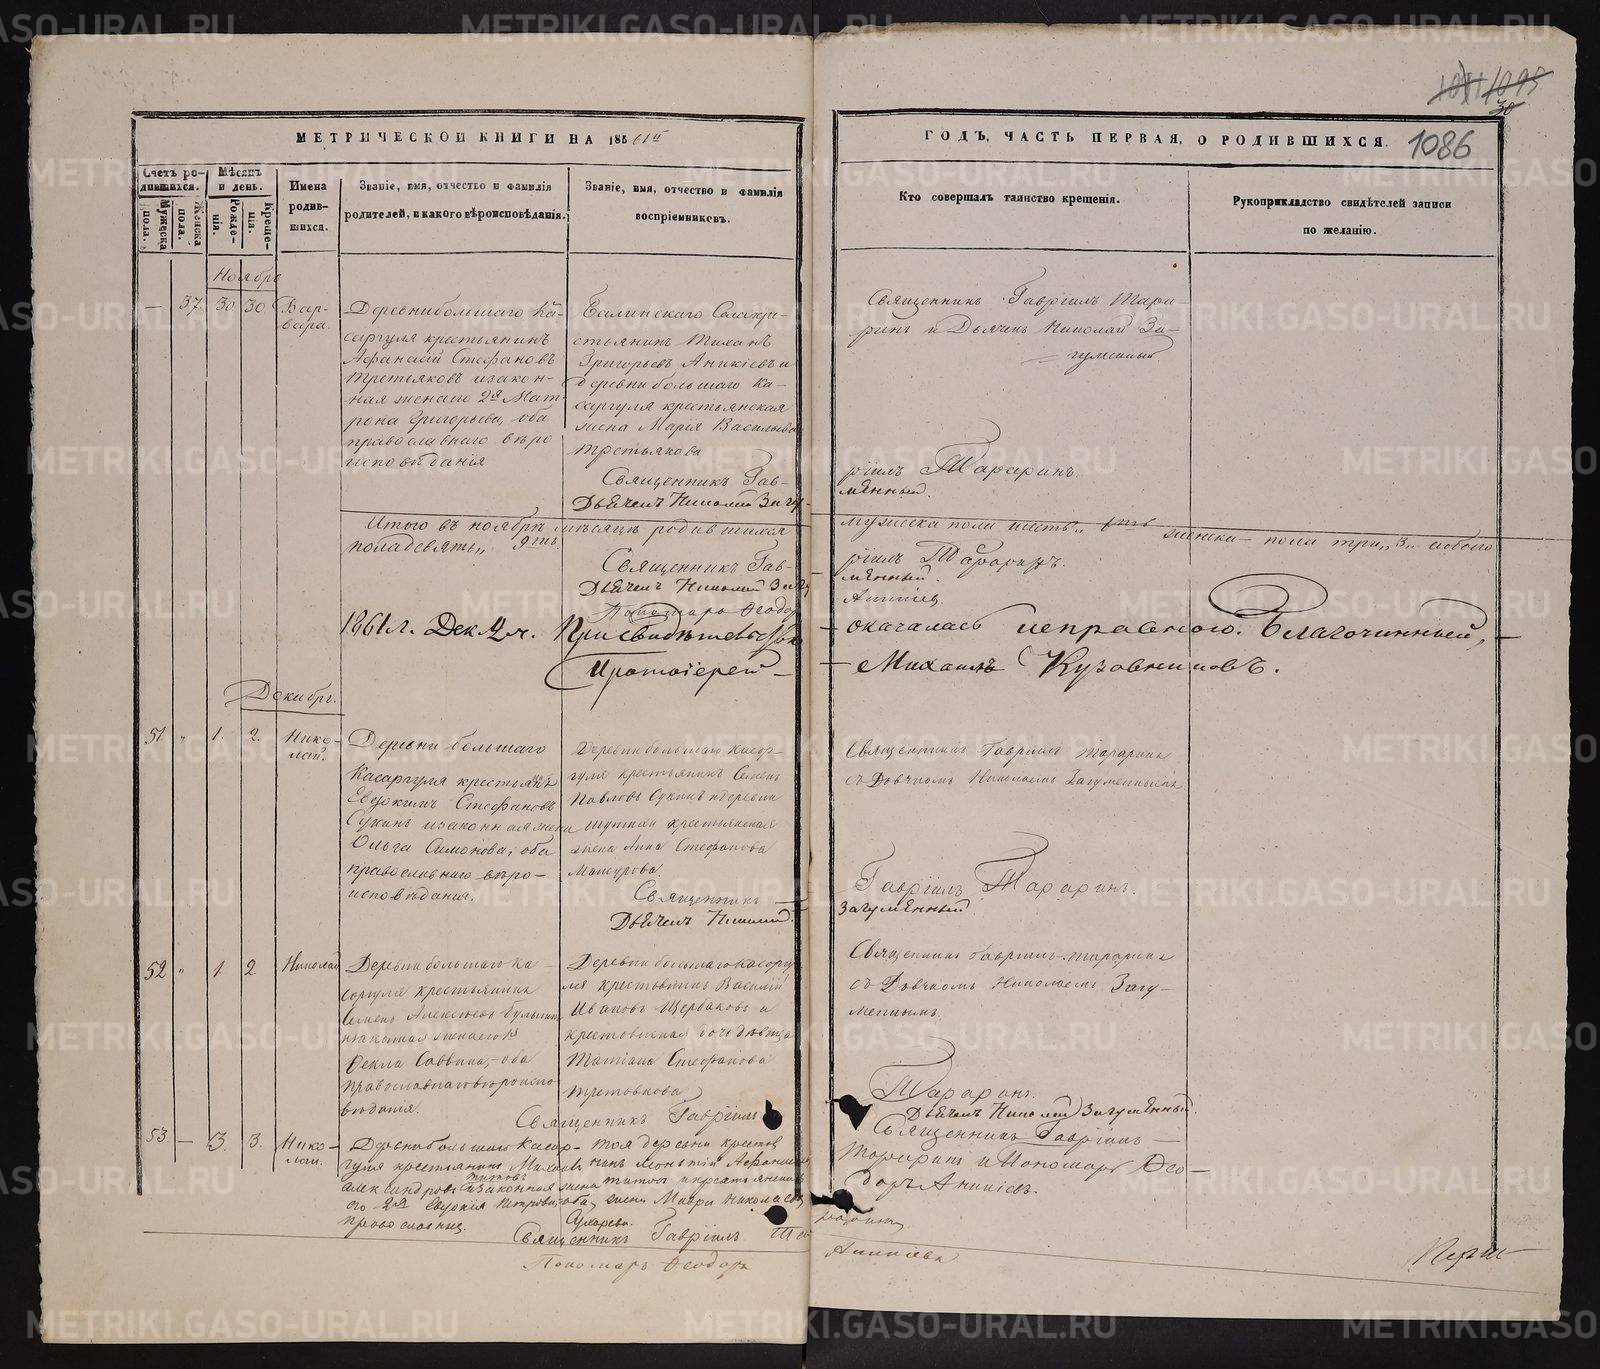 МЕТРИЧЕСКОЙ КНИГИ НА 1861й
ГОДЪ, ЧАСТЬ ПЕРВАЯ, О РОДИВШИХСЯ.
1086
30
Счетъ родившихся.
Мужеска пола.
Женска пола.
Мѣсяцъ и день.
Рожденія.
Крещенія.
Имена родившихся.
Званіе, имя, отчество и фамилія
родителей, и какого вѣроисповѣданія.
Званіе, имя, отчество и фамилія
воспріемниковъ.
Кто совершалъ таинство крещенія.
Рукоприкладство свидѣтелей записи
по желанію.
Ноябрь
37. 30 30 Варвара
Деревни большаго Ка-
саргуля крестьянинъ
Афанасій Стефановъ
Третьяковъ и закон-
ная жена его 2я Мат-
рона Григорьева, оба
православнаго вѣро
исповѣданія
стьянинъ Тиханъ
Григорьевъ Аникіевъ и
деревни большаго Ка-
саргуля крестьянская
жена Марія Васильева
Третьякова
Священникъ Гавріилъ Тара-
ринъ и Дьячекъ Николай За-
гуменный
Священникъ Гавріилъ Тараринъ.
Дьячекъ Николай Загумѣнный.
Итого въ ноябрѣ мѣсяцѣ родившихся мужеска пола шесть, женска пола три, 3, обоего
пола девять, 9ть.
Священникъ Гавріилъ Тараринъ.
Дьячекъ Николай Загумѣнный.
Пономарь Ѳеодоръ Аникіевъ
1861 г. Дек. Присвидѣтельствована оказалась исправною. Благочинный,
Протоіерей Михаилъ Кузовниковъ.
Декабрь.
51 " 1. 2. Николай.
Деревни большаго
Касаргуля крестьянинъ
Евдокимъ Стефановъ
Сукинъ и законная жена
Ольга Симонова, оба
православнаго вѣро-
исповѣданія.
Деревни большаго Касар-
гуля крестьянинъ Семенъ
Павловъ Сукинъ и деревни
крестьянская
жена Анна Стефанова
Священникъ Гавріилъ Тараринъ
съ Дьячкомъ Николаемъ Загуменнымъ
Священникъ Гавріилъ Тараринъ.
Дьячекъ Николай Загумѣнный
52 " 1. 2 Николай
Деревни большаго Ка-
саргуля крестьянинъ
Семенъ Алексѣевъ
законная жена его
Ѳекла Саввина, оба
православнаго вѣроиспо-
вѣданія.
Деревни большаго Касаргу-
ля крестьянинъ Василій
Ивановъ Щербаковъ и
крестьянская дочь дѣвица
Татіана Стефанова
Третьякова
Священникъ Гавріилъ Тараринъ
съ Дьячкомъ Николаемъ Загу-
меннымъ
Священникъ Гавріилъ Тараринъ.
Дьячекъ Николай Загумѣнный.
53 — 3. 3. Николай.
Деревни большаго Касар-
гуля крестьянинъ
александровъ Титовъ и законная жена
его 2я Евдокія Петрова, оба
православные.
тоя деревни кресть
жена Мавра Николаева
Сухарева.
Священникъ Гавріилъ
Тараринъ и Пономарь Ѳео-
доръ Аникіевъ.
Священникъ Гавріилъ Тараринъ
Пономарь Ѳеодоръ Аникіевъ
METRIKI.GASO-URAL.RU